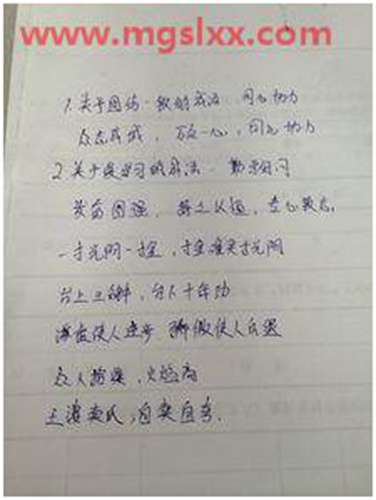 www.mgslxx.com
1.关于团结一致的成语 同心协力
众志成城,万众一心,同心协力
2.关于学习的成语 勤学好问
发奋图强,持之以恒,专心致志
一寸光阴一寸金,寸金难买寸光阴
台上三分钟,台下十年功
谦虚使人进步 骄傲使人落后
众人拾柴,火焰高
王婆卖瓜,自卖自夸.